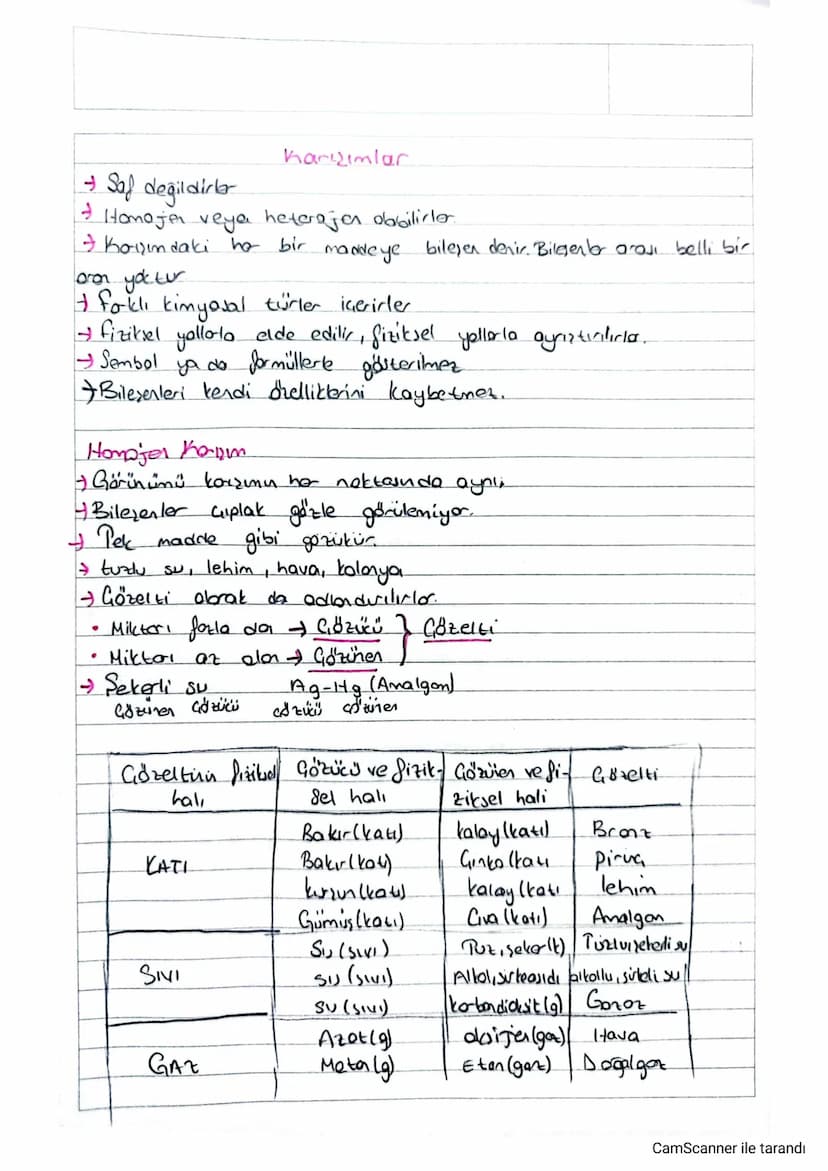 Karışımlar
→ Saf değildirler
→ Homojen veya heterojen olabilirler.
→ Karışımdaki her bir maddeye bileşen denir. Bileşenler arası belli bir
oran yoktur
→ farklı kimyasal türler içerirler
→ fiziksel yollarla elde edilir, fiziksel yollarla ayrıştırılırla.
→ Sembol ya da formüllerle gösterilmez
→ Bileşenleri kendi özelliklerini kaybetmez.
Homojen Karışım
→ Görünümü karışımın her noktasında aynı,
→ Bileşenler çıplak gözle görülemiyor.
→ Tek madde gibi gözükür.
→ tuzlu su, lehim, hava, kolonya
→ Çözelti olarak da adlandırılırlar.
• Miktarı fazla olan → Çözücü } Çözelti
• Miktarı az olan → Çözünen
→ Şekerli su Ag-Hg (Amalgan)
Çözünen Çözücü çözücü çözünen
Çözeltinin fiziksel Çözücü ve fizik- Çözünen ve fi- Çözelti
halı sel halı ziksel hali
Bakır (katı) kalay (katı) Bronz
KATI Bakır (katı) Çinko (katı Pirinç
kurşun (katı) kalay (katı lehim
Gümüş (katı) Cıva (katı) Amalgan
Su (sıvı) Tuz, şeker (k) Tuzlu, şekerli su
SIVI su (sıvı) Alkol, sirke asidi alkollu, sirkeli su
su (sıvı) karbondioksit (g) Gazoz
Azot (g) oksijen (gaz) Hava
GAZ Metan (g) Etan (gaz) Doğalgaz
CamScanner ile tarandı